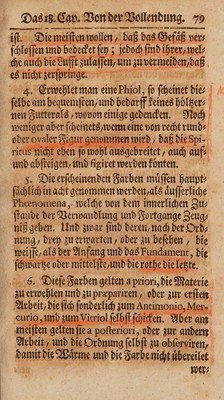 Das 18. Cap. Von der Vollendung. 79
ist. Die meisten wollen, daß das Gefäß ver-
schlossen und bedecket sey; jedoch sind ihrer, wel-
che auch die Lufft zulassen, um zu vermeiden, daß
es nicht zerspringe.
4. Erwehlet man eine Phiol, so scheinet die-
selbe am bequemsten, und bedarff keines höltzer-
nen Futterals, wovon einige gedencken. Noch
weniger aber scheinets, wenn eine von recht rund-
oder ovaler Figur genommen wird, daß die Spi-
ritus nicht eben so wohl ausgebreitet, auch auf-
und absteigen, und figiret werden könten.
5. Die erscheinenden Farben müssen haupt-
sächlich in acht genommen werden, als äusserliche
Phœnomena, welche von dem innerlichen Zu-
stande der Verwandlung und Fortgange Zeug-
niß geben. Und zwar sind deren, nach der Ord-
nung, drey zu erwarten, oder zu besehen, die
weisse, als der Anfang und das Fundament, die
schwartze oder mittelste, und die rothe die letzte.
6. Diese Farben gelten a priori, die Materie
zu erwehlen und zu præpariren, oder zur ersten
Arbeit, die sich sonderlich zum Antimonio, Mer-
curio, und zum Vitriol selbst schicken. Aber am
meisten gelten sie a posteriori, oder zur andern
Arbeit, und die Ordnung selbst zu observiren,
damit die Wärme und die Farbe nicht übereilet
wer-